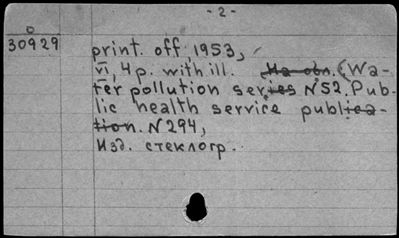 - 2 -
0
30929
print. off. 1953,
VI, 4 p. with ill. На обл. (Wa-
ter pollution series N 52. Pub-
lic health service publica-
tion. N 294,
Изд. стеклогр.